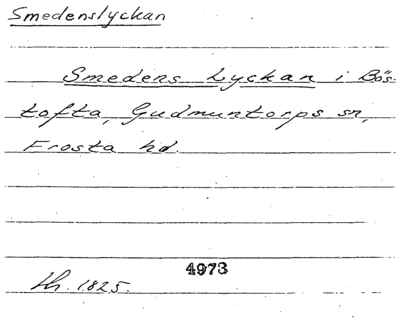 Smedenslyckan
Smedens Lyckan i Bös-
tofta, Gudmuntorps sn,
Frosta hd.
4973
1825.